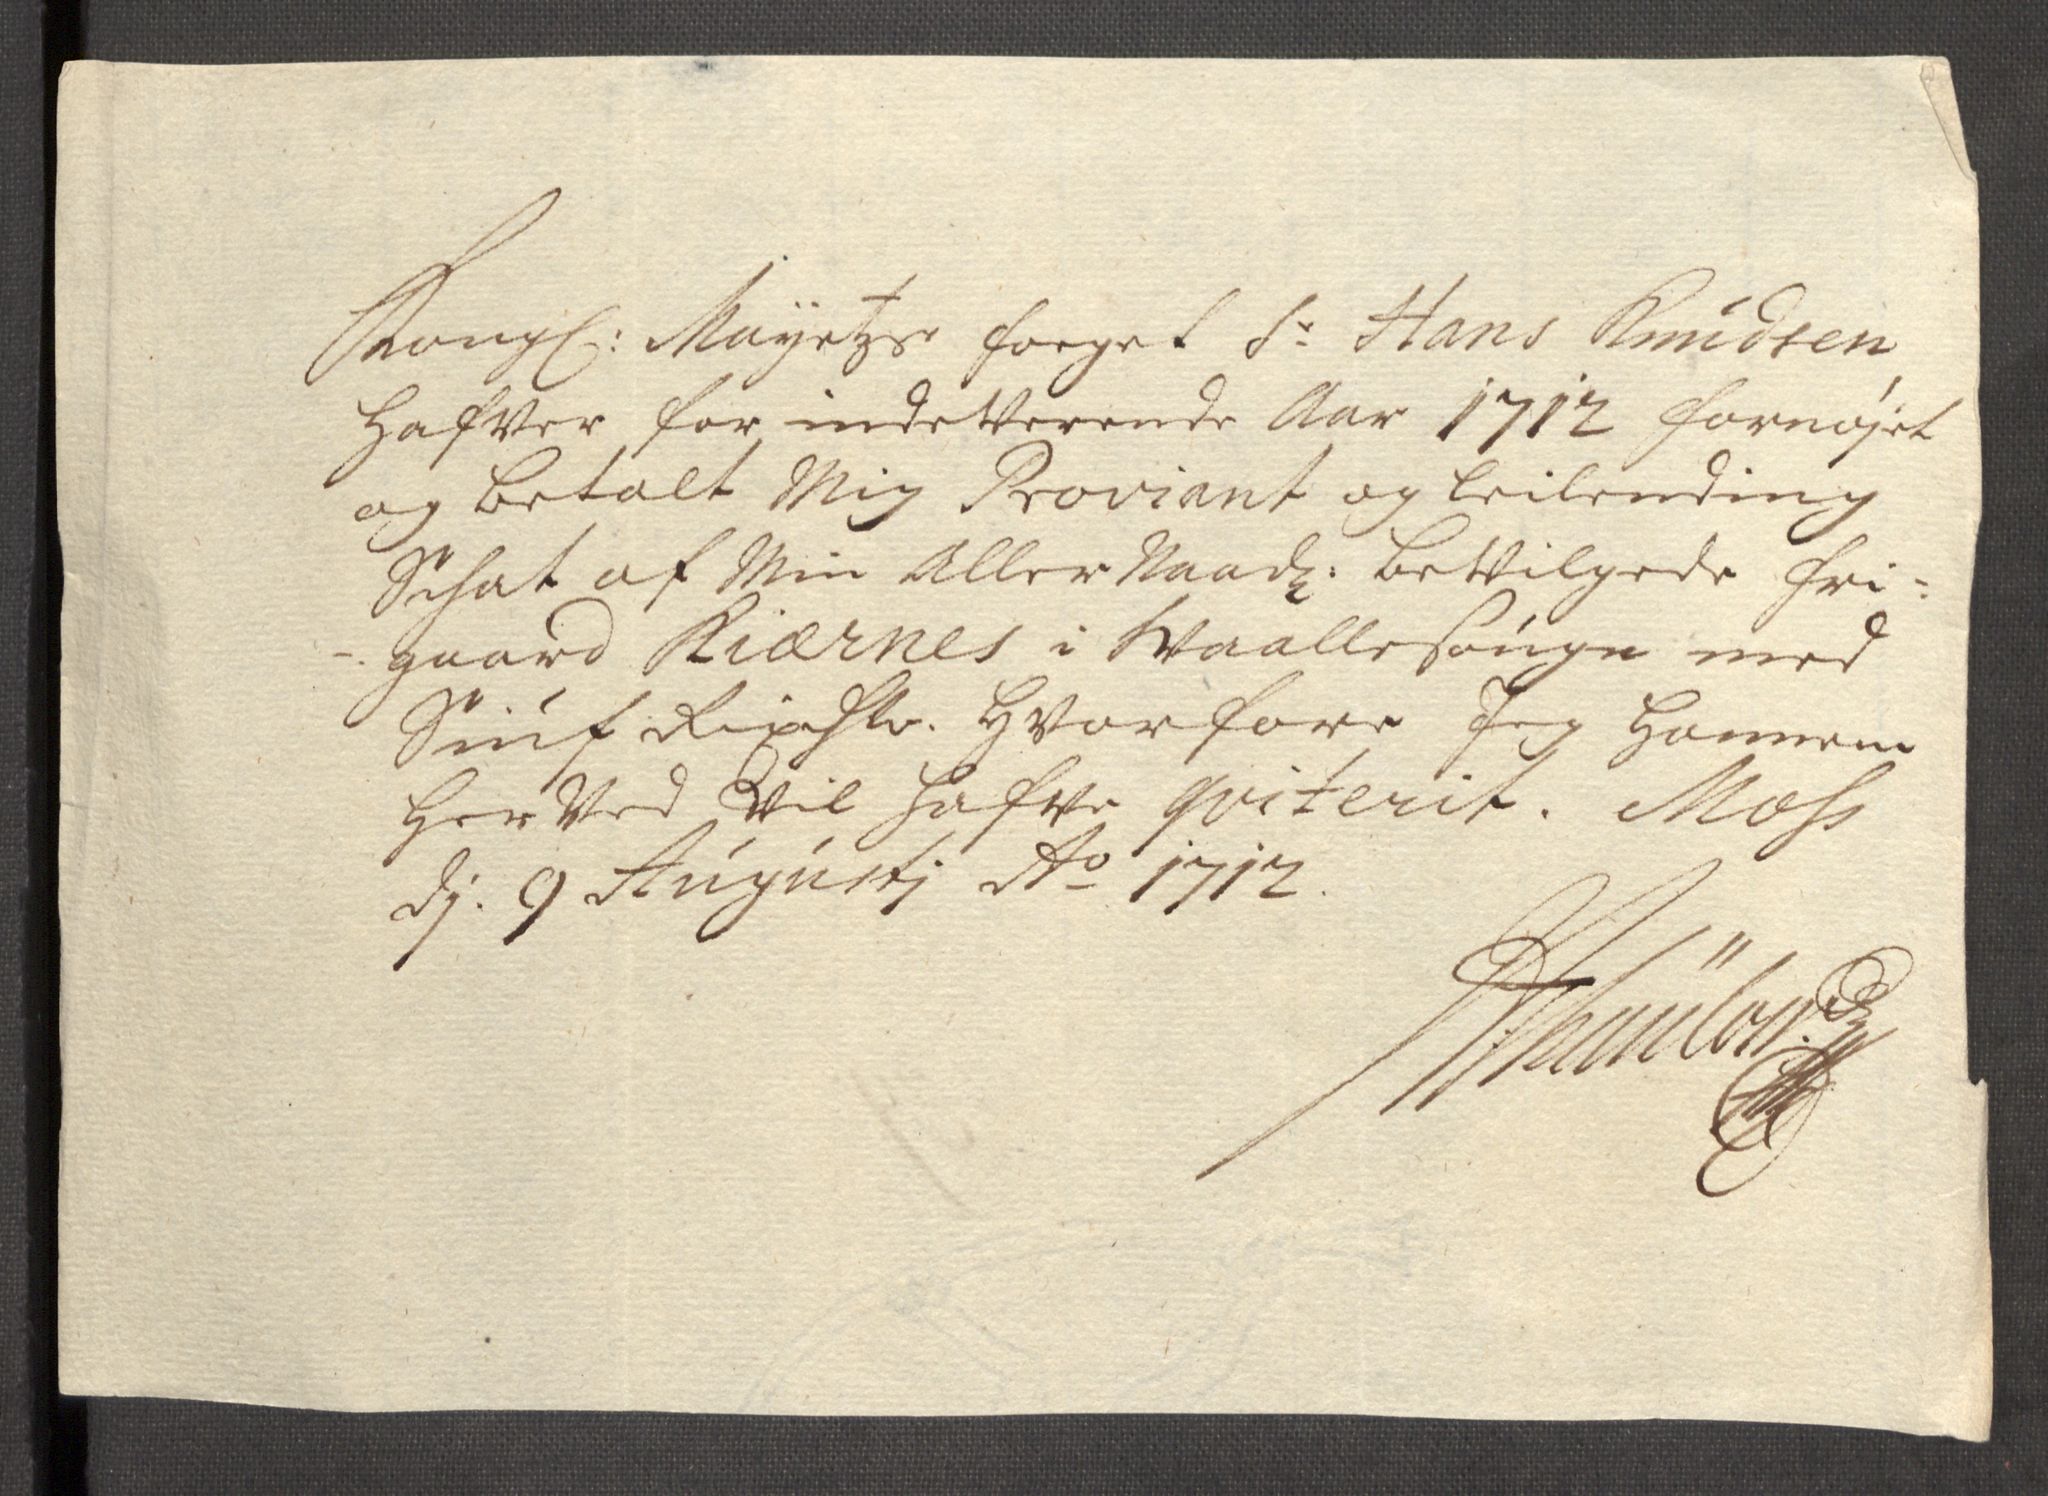 Kongl: Mayetzs foeget Sr Hans Knudsen
hafver for indeverende Aar 1712 fornøjet
og betalt Mig Proviant og leilending
Schat af Min Aller Naadl: bevilgede fri-
-gaard Kiærnes i Waallesougn med
Siuf Rixdlr. hvorfore Jeg hannem
herved vil hafve qviterit. Moss
dj. 9 Augustj Ao 1712.